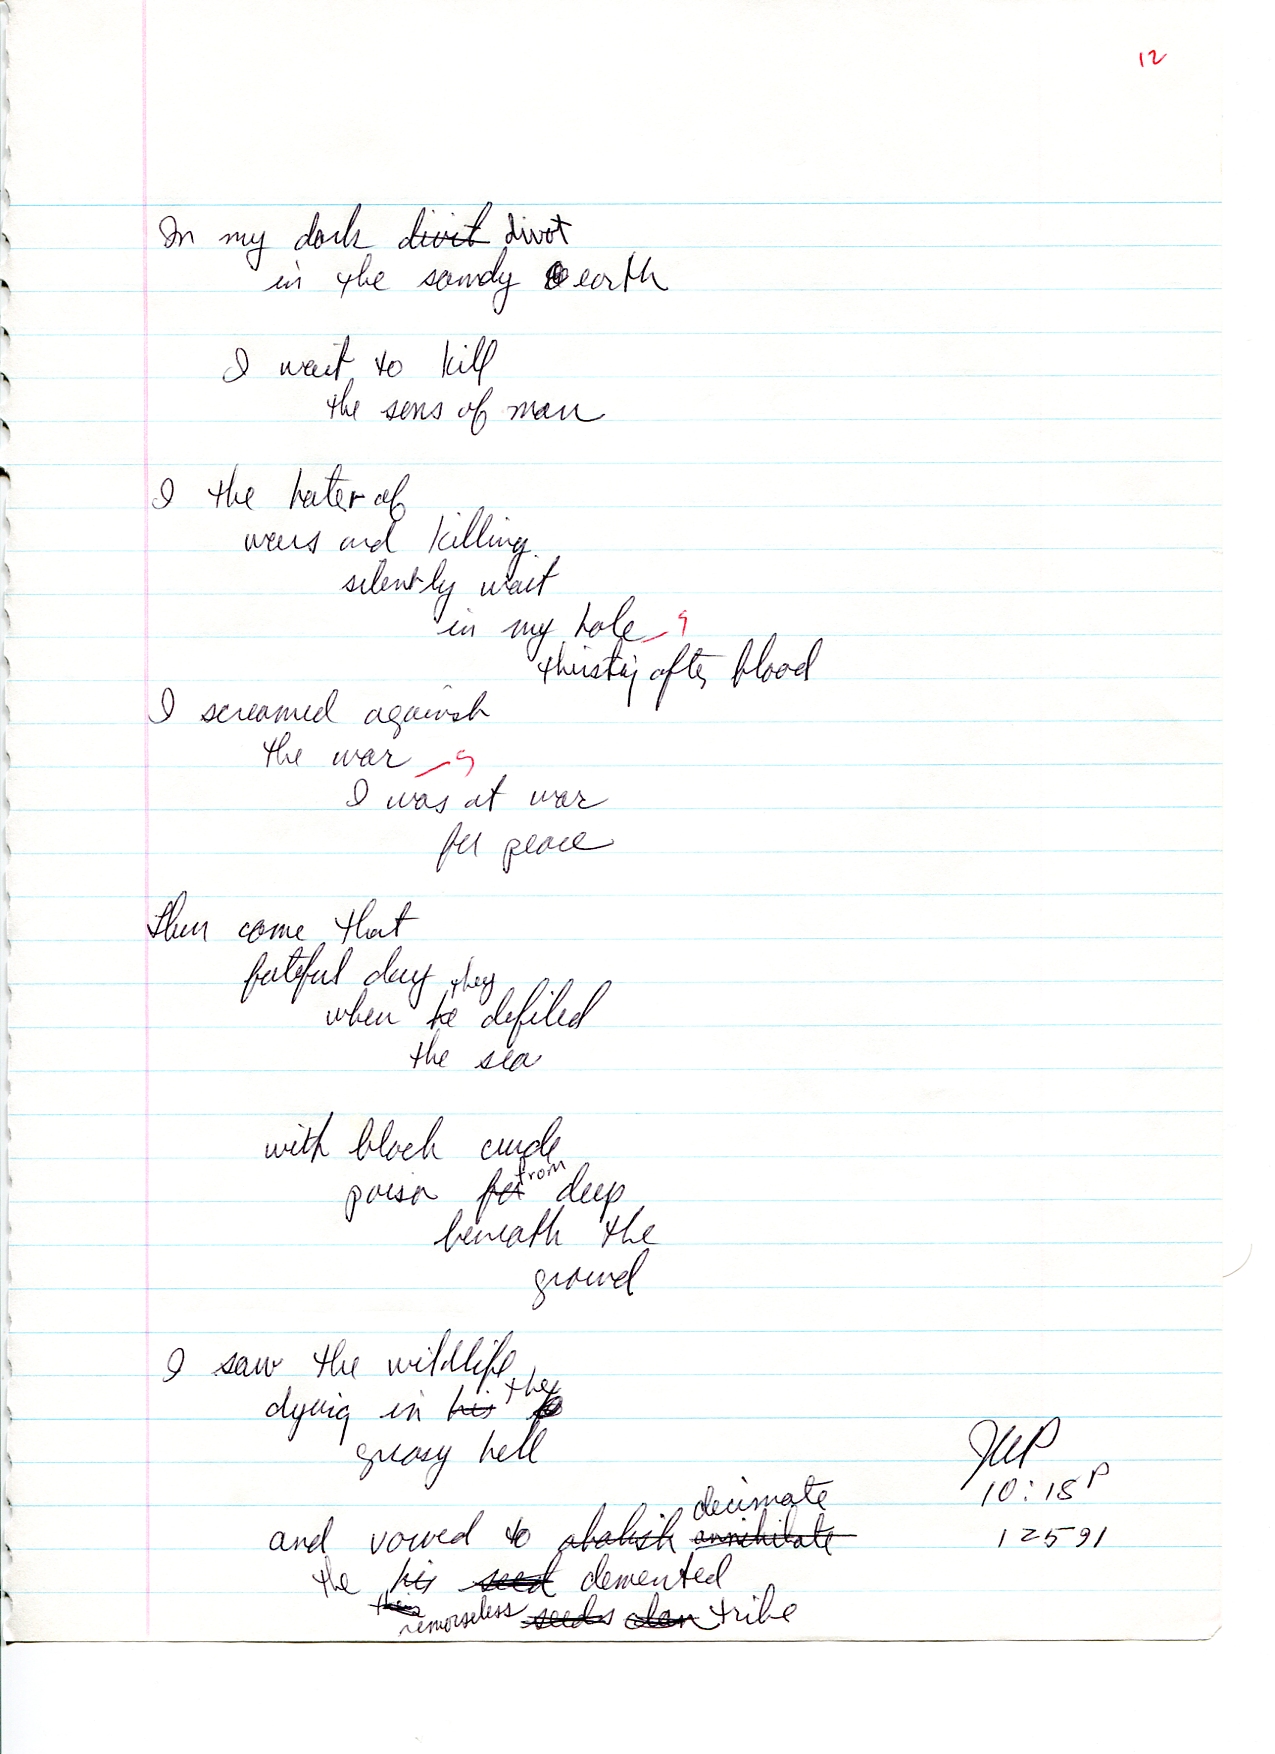 12
In my dark divit divot
in the sandy earth
I wait to kill
the sons of man
I the hater of
wars and killing
silently wait
in my hole –,
thirsting after blood
I screamed against
the war –,
I was at war
for peace
then come that
fateful day they
when he defiled
the sea
with black crude
poison for from deep
beneath the
ground
I saw the wildlife
dying in his the
greasy hell
JWP
10:18 P
12591
decimate
and vowed to abolish annihilate
the his seed demented
this remorseless seeds clan tribe